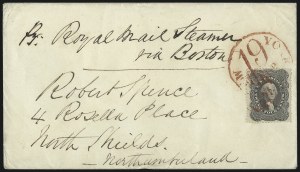 Pr. Royal Mail Steamer
via Boston
Robert Spence
4 Rosella Place
North Shields.
Northumberland
19